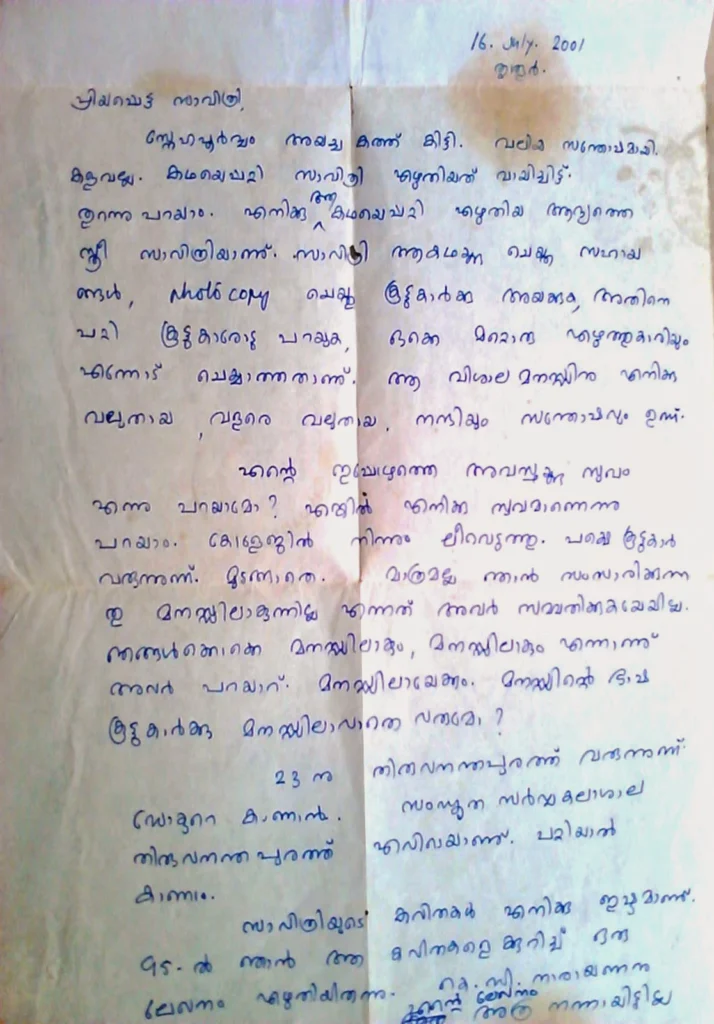 16. July. 2001
തൃശൂർ.
പ്രിയപ്പെട്ട സാവിത്രി,
സ്നേഹപൂർവ്വം അയച്ച കത്ത് കിട്ടി. വലിയ സന്തോഷമായി.
കളവല്ല. കഥയെപ്പറ്റി സാവിത്രി എഴുതിയത് വായിച്ചിട്ട്.
തുറന്നു പറയാം. എനിക്കു ആ കഥയെപ്പറ്റി എഴുതിയ ആദ്യത്തെ
സ്ത്രീ സാവിത്രിയാണ്. സാവിത്രി ആ കഥക്കു ചെയ്ത സഹായ
ങ്ങൾ, photo copy ചെയ്തു കൂട്ടുകാർക്കു അയക്കുക, അതിനെ
പറ്റി കൂട്ടുകാരോടു പറയുക, ഒക്കെ മറ്റൊരു എഴുത്തുകാരിയും
എന്നോട് ചെയ്യാത്തതാണ്. ആ വിശാല മനസ്സിനു എനിക്കു
വലുതായ, വളരെ വലുതായ, നന്ദിയും സന്തോഷവും ഉണ്ട്.
എന്റെ ഇപ്പോഴത്തെ അവസ്ഥക്കു സുഖം
എന്നു പറയാമോ? എങ്കിൽ എനിക്കു സുഖമാണെന്നു
പറയാം. കോളേജിൽ നിന്നും ലീവെടുത്തു. പക്ഷെ കൂട്ടുകാർ
വരുന്നുണ്ട്. മുടങ്ങാതെ. മാത്രമല്ല ഞാൻ സംസാരിക്കുന്ന
തു മനസ്സിലാകുന്നില്ല എന്നത് അവർ സമ്മതിക്കുകയേയില്ല.
ഞങ്ങൾക്കൊക്കെ മനസ്സിലാകും, മനസ്സിലാകും എന്നാണ്
അവർ പറയാറ്. മനസ്സിലായേക്കും. മനസ്സിന്റെ ഭാഷ
കൂട്ടുകാർക്കു മനസ്സിലാവാതെ വരുമോ?
23 നു തിരുവനന്തപുരത്ത് വരുന്നുണ്ട്
ഡോക്ടറെ കാണാൻ. സംസ്കൃത സർവ്വകലാശാല
തിരുവനന്തപുരത്ത് എവിടെയാണ്. പറ്റിയാൽ
കാണാം.
സാവിത്രിയുടെ കവിതകൾ എനിക്കു ഇഷ്ടമാണ്.
95-ൽ ഞാൻ ആ കവിതകളെക്കുറിച്ച് ഒരു
ലേഖനം എഴുതിയിരുന്നു. കെ. സി. നാരായണനു
എന്റെ ലേഖനം അത്ര നന്നായിട്ടില്ല